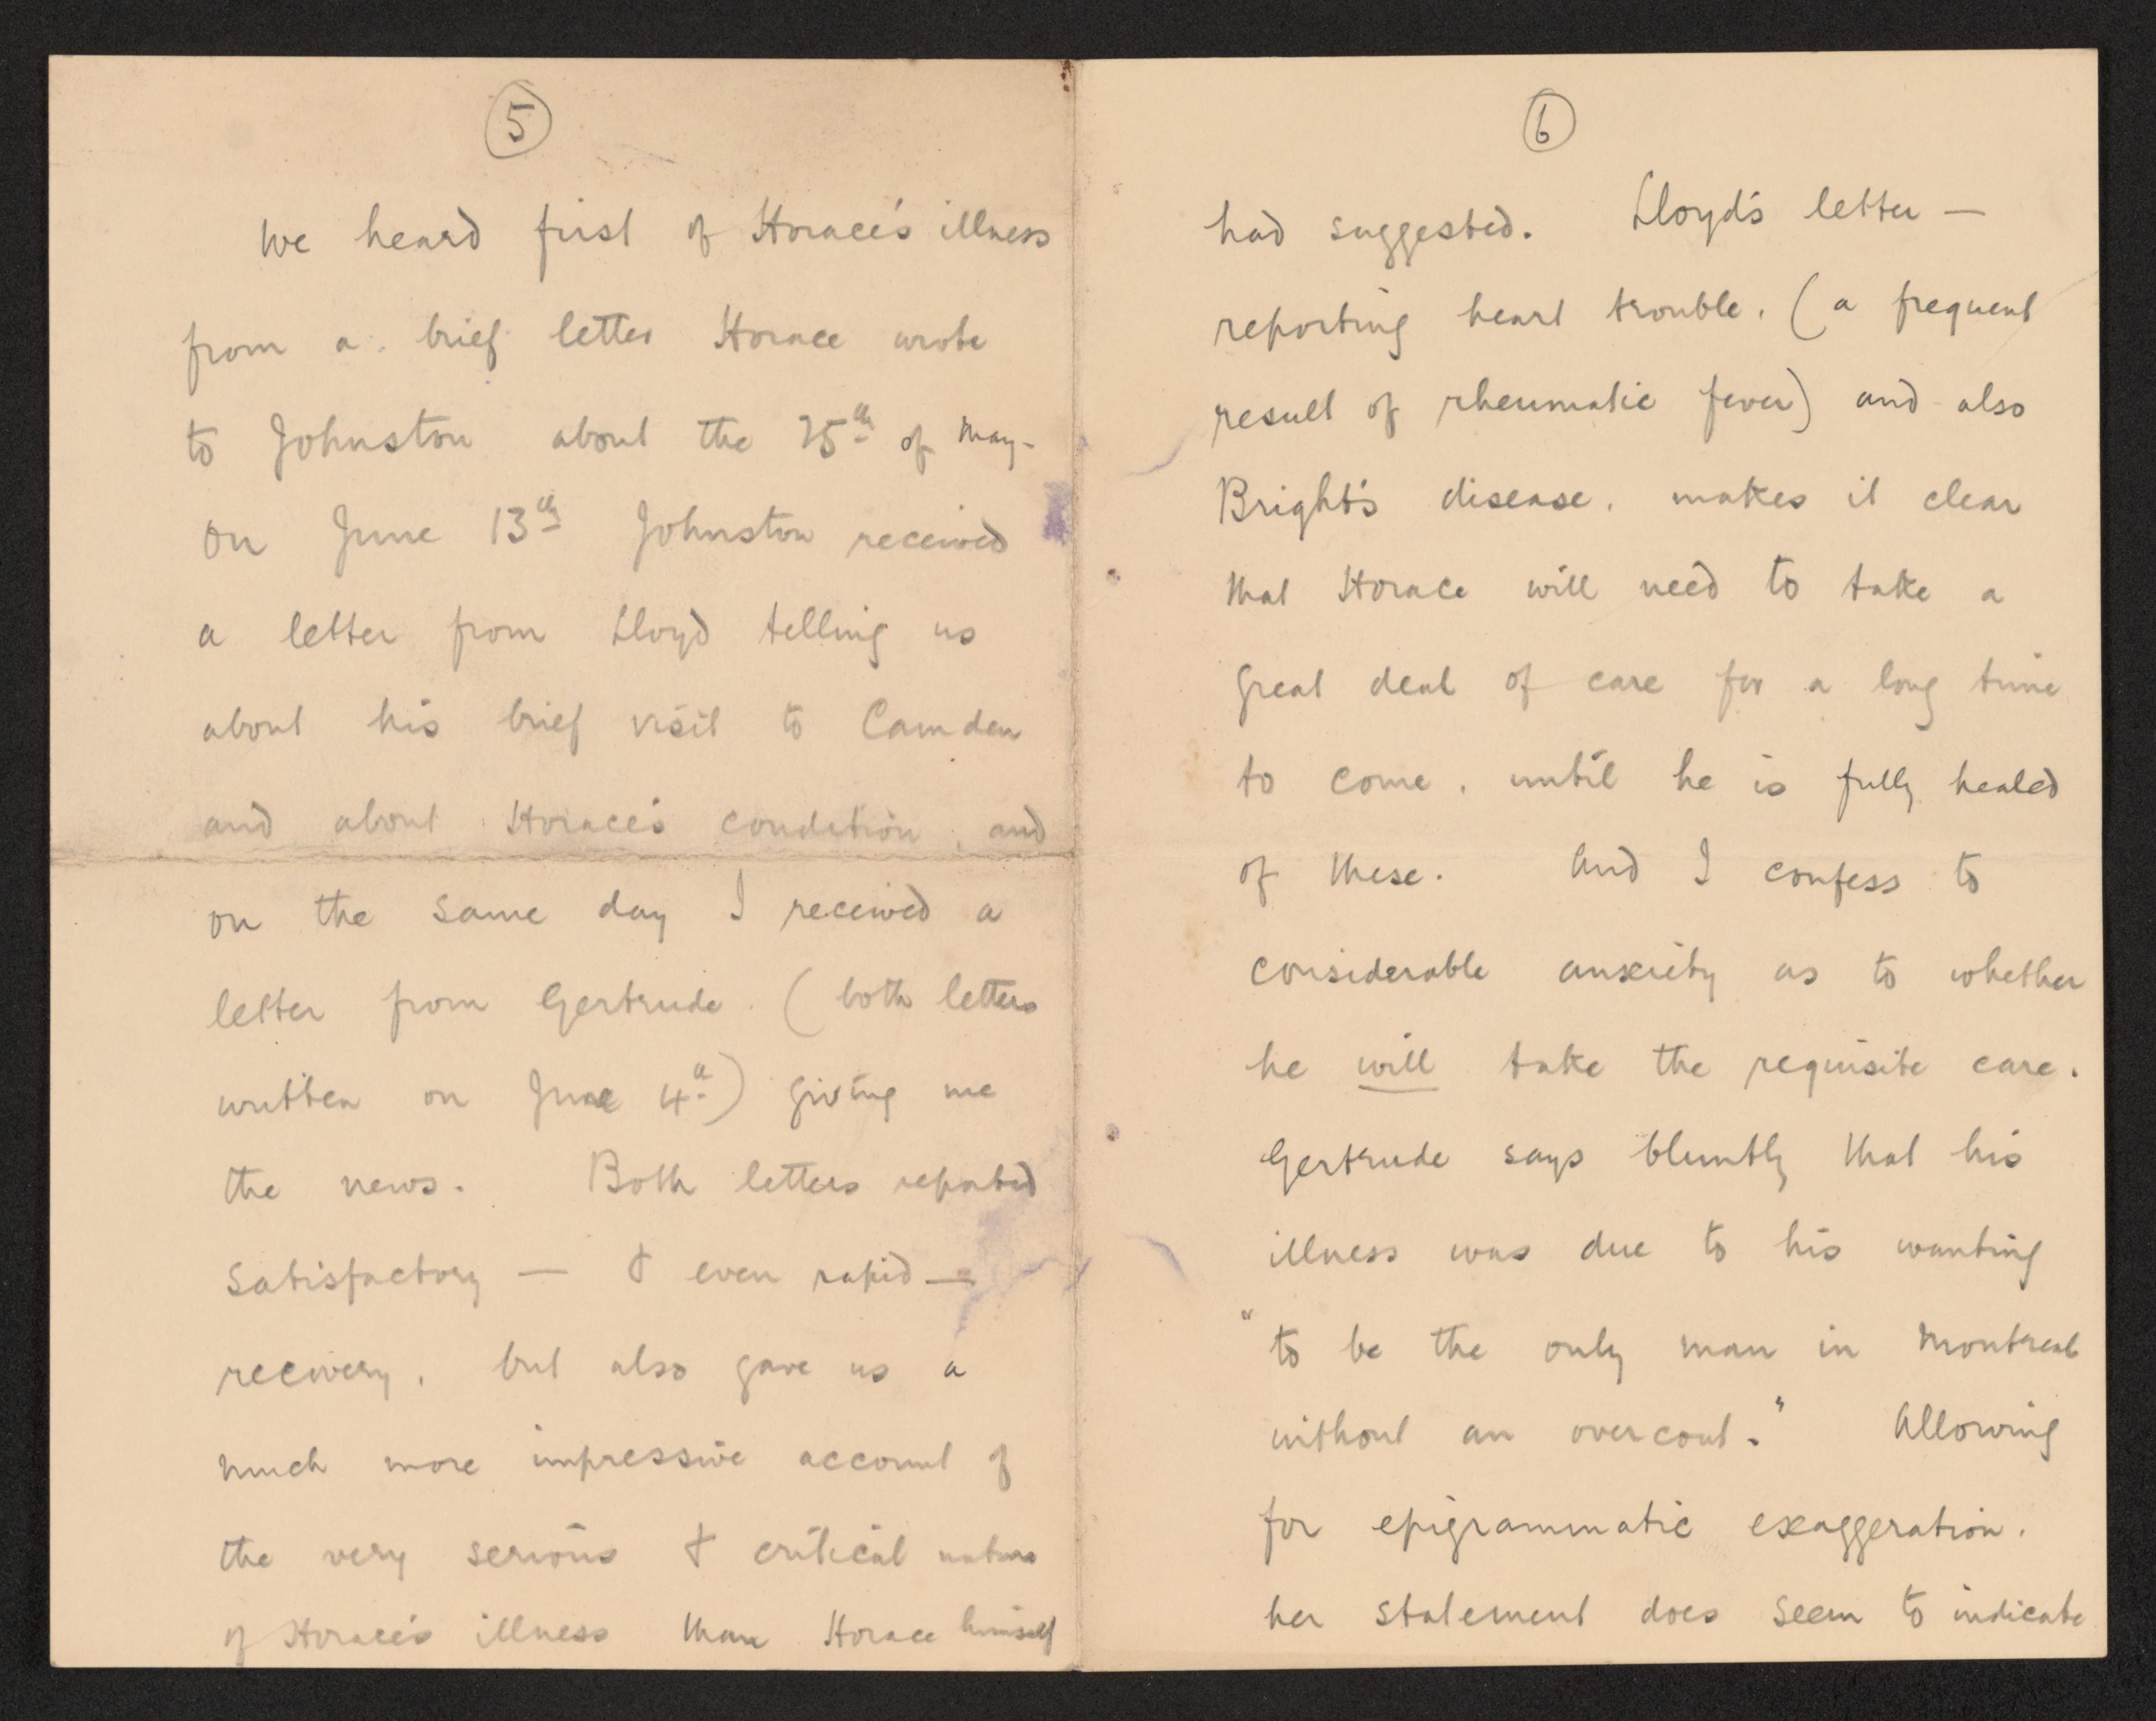 5
We heard first of Horace's illness
from a brief letter Horace wrote
to Johnston about the 25th of May.
On June 13th Johnston received
a letter from Lloyd telling us
about his brief visit to Camden
and about Horace's condition, and
on the same day I received a
letter from Gertrude. (both letters
written on June 4th) giving me
the news. Both letters reported
satisfactory — & even rapid —
recovery, but also gave us a
much more impressive account of
the very serious & critical nature
of Horace's illness than Horace himself
6
had suggested. Lloyd's letter —
reporting heart trouble, (a frequent
result of rheumatic fever) and also
Bright's disease, makes it clear
that Horace will need to take a
great deal of care for a long time
to come, until he is fully healed
of these. And I confess to
considerable anxiety as to whether
he will take the requisite care.
Gertrude says bluntly that his
illness was due to his wanting
"to be the only man in Montreal
without an overcoat." Allowing
for epigrammatic exaggeration,
her statement does seem to indicate